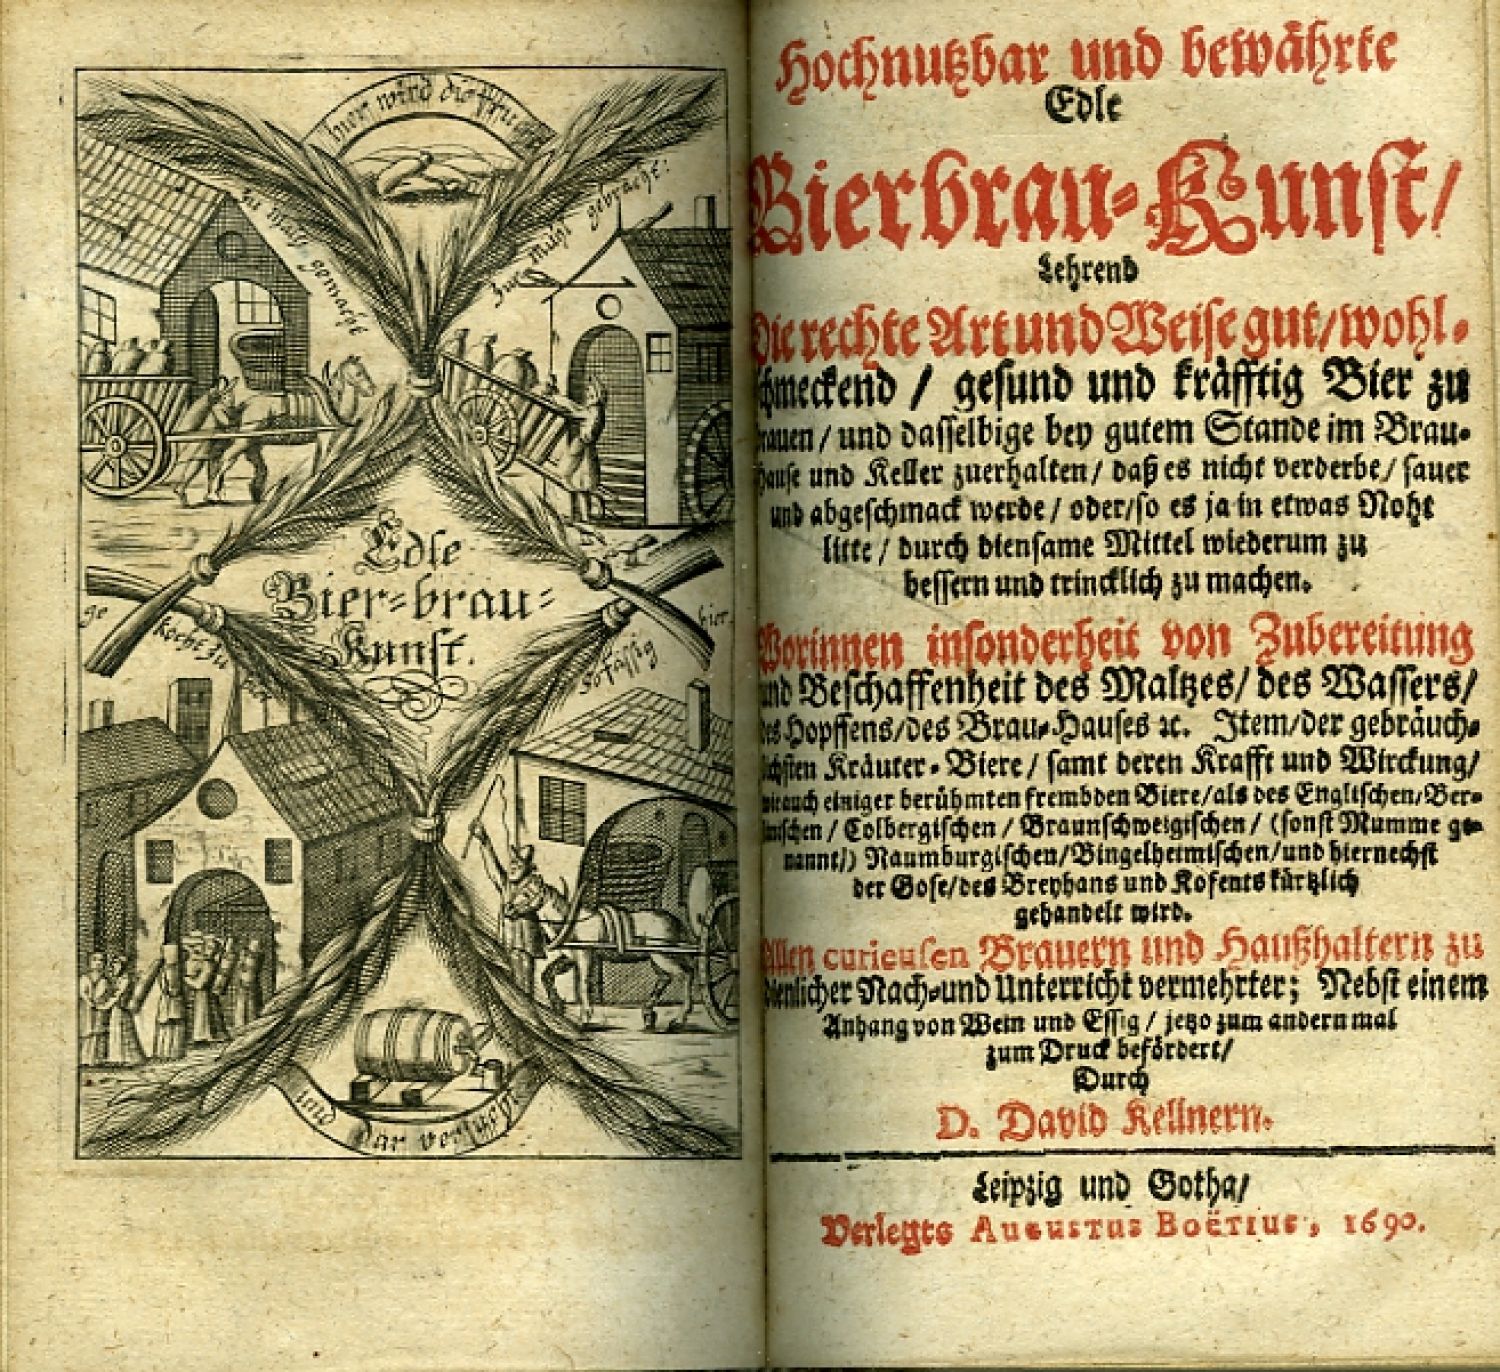 hier wird die
zu Maltz gemacht
Zur Mühl gebracht:
Edle
Bier=brau=
Kunst.
ge
kocht zu
bier.
so fässig
und dar
Hochnutzbar und bewährte
Edle
Bierbrau-Kunst/
Lehrend
Die rechte Art und Weise gut/wohl-
schmeckend / gesund und kräfftig Bier zu
brauen / und dasselbige bey gutem Stande im Brau-
Hause und Keller zuerhalten / daß es nicht verderbe/ sauer
und abgeschmack werde / oder/so es ja in etwas Noht
litte / durch diensame Mittel wiederum zu
bessern und trincklich zu machen.
Worinnen insonderheit von Zubereitung
und Beschaffenheit des Maltzes/ des Wassers/
des Hopffens/des Brau-Hauses ꝛc. Item/der gebräuch-
lichsten Kräuter-Biere/ samt deren Krafft und Wirckung/
wie auch einiger berühmten frembden Biere/als des Englischen/Ber-
linischen / Colbergischen / Braunschweigischen / (sonst Mumme ge-
nannt/) Naumburgischen/Bingelheimischen/und hiernechst
der Gose/des Breyhans und Kofents kürtzlich
gehandelt wird.
Allen curieusen Brauern und Haußhaltern zu
dienlicher Nach-und Unterricht vermehrter; Nebst einem
Anhang von Wein und Essig / jetzo zum andern mal
zum Druck befördert/
Durch
D. David Kellnern.
Leipzig und Gotha/
Verlegts Augustus Boëtius, 1690.